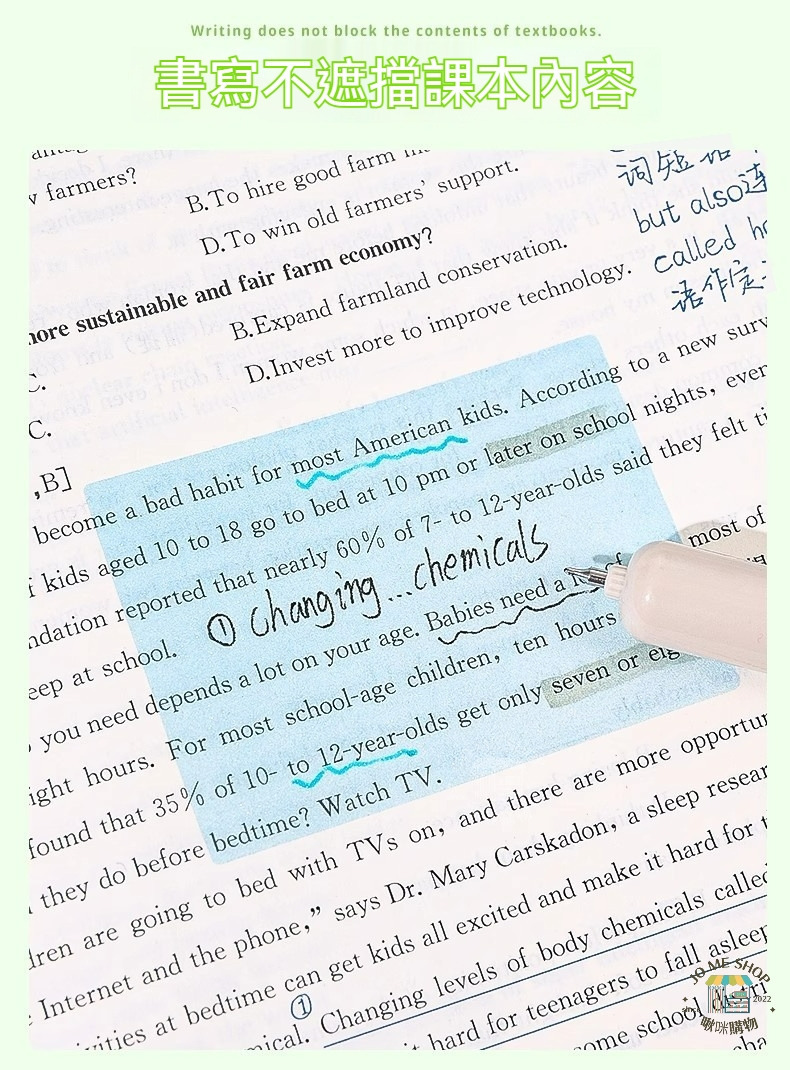 Writing does not block the contents of textbooks.
書寫不遮擋課本內容
farmers?
B.To hire good farm
D.To win old farmers' support.
more sustainable and fair farm economy?
B.Expand farmland conservation.
D.Invest more to improve technology.
C.
C.
,B]
词短语
but also连
called
语作定
become a bad habit for most American kids. According to a new
kids aged 10 to 18 go to bed at 10 pm or later on school nights, even
reported that nearly 60% of 7- to 12-year-olds said they felt
at school.
① changing...chemicals
most of
you need depends a lot on your age. Babies need a lot of
hours. For most school-age children, ten hours
found that 35% of 10- to 12-year-olds get only seven or
they do before bedtime? Watch TV.
are going to bed with TVs on, and there are more
Internet and the phone," says Dr. Mary Carskadon, a sleep
at bedtime can get kids all excited and make it hard for
①
Changing levels of body chemicals called
hard for teenagers to fall asleep
some school
JO ME SHOP
since 2022
啾咪購物